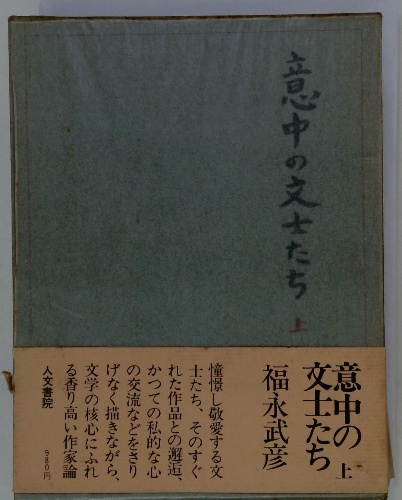 意中の文士たち
上
意中の
文士たち
上
福永武彦
憧憬し敬愛する文
士たち、そのすぐ
れた作品との邂逅、
かつての私的な心
の交流などをさり
げなく描きながら、
文学の核心にふれ
る香り高い作家論
人文書院
980円